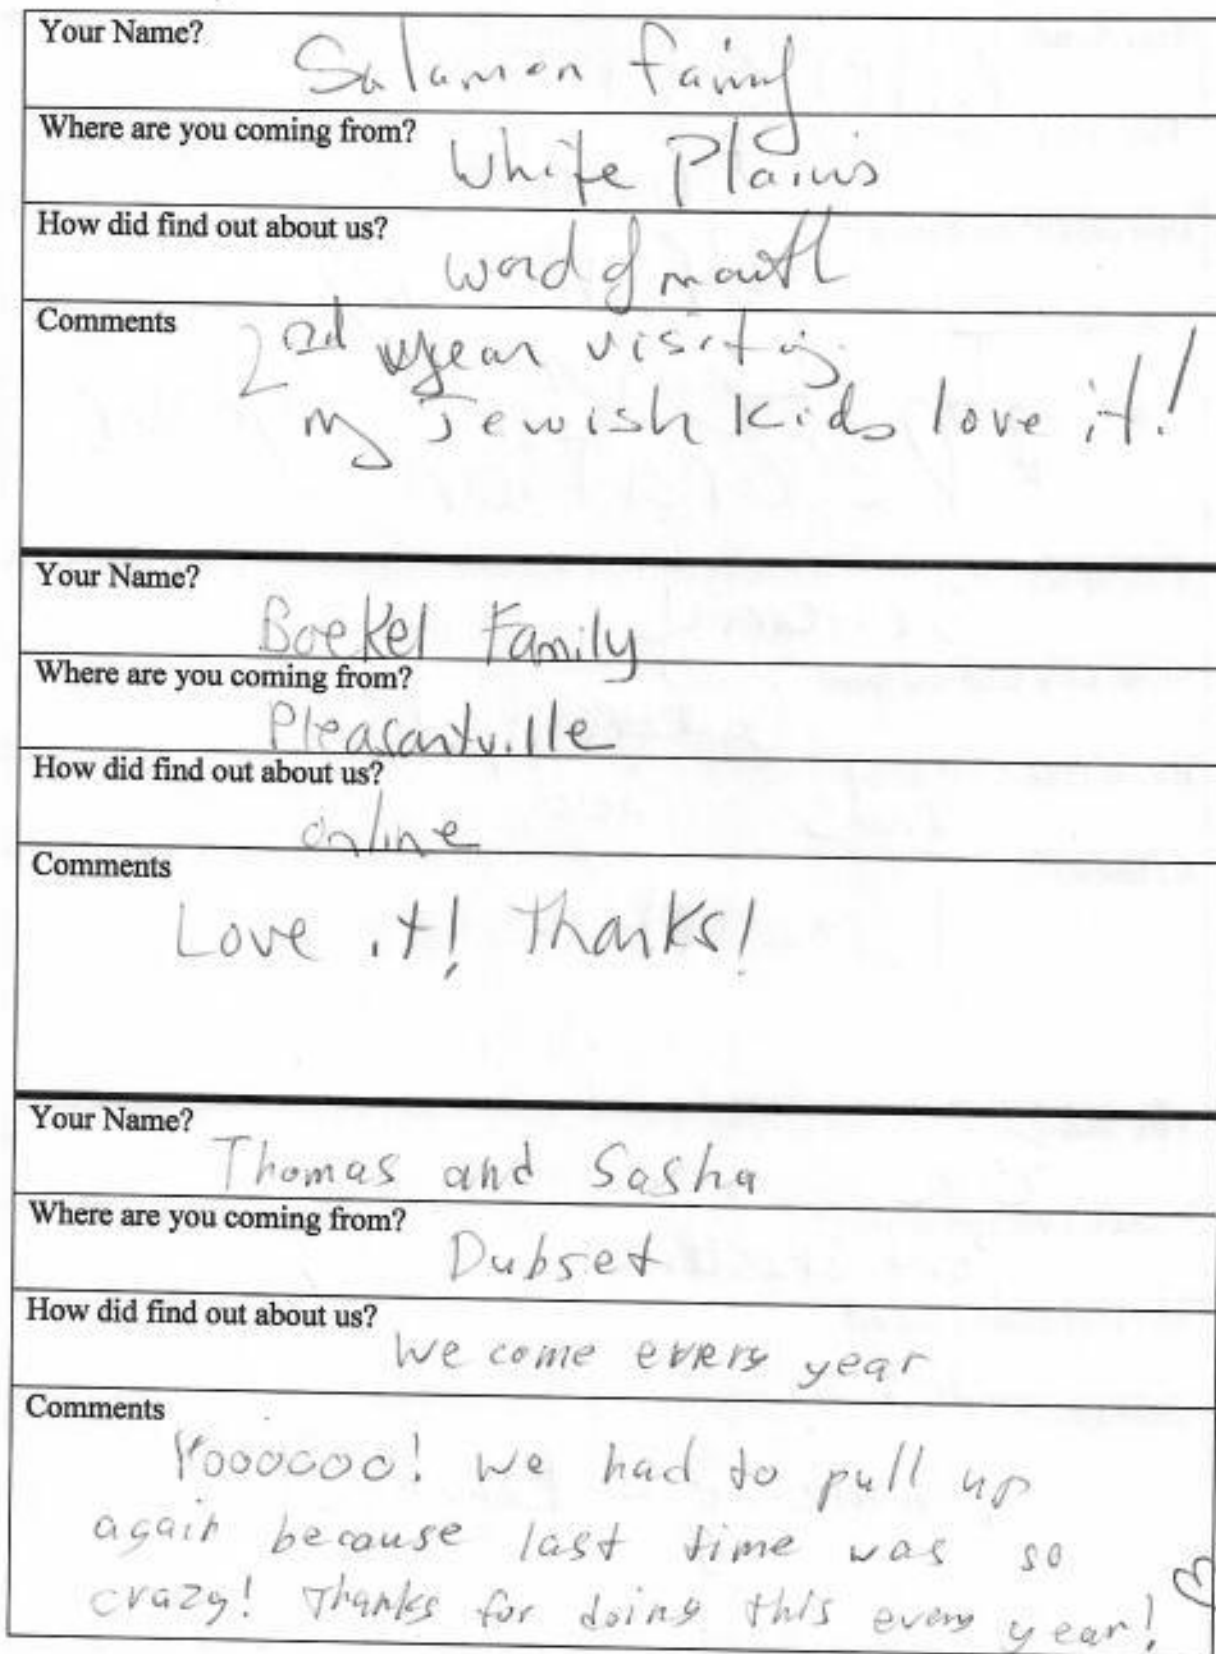 Your Name?
Salamon family
Where are you coming from?
White Plains
How did find out about us?
word of mouth
Comments
2nd year visiting
my Jewish kids love it!
Your Name?
Boekel Family
Where are you coming from?
Pleasantville
How did find out about us?
online
Comments
Love it! Thanks!
Your Name?
Thomas and Sasha
Where are you coming from?
Dubset
How did find out about us?
We come every year
Comments
Yoooooo! we had to pull up
again because last time was so
crazy! Thanks for doing this every year!